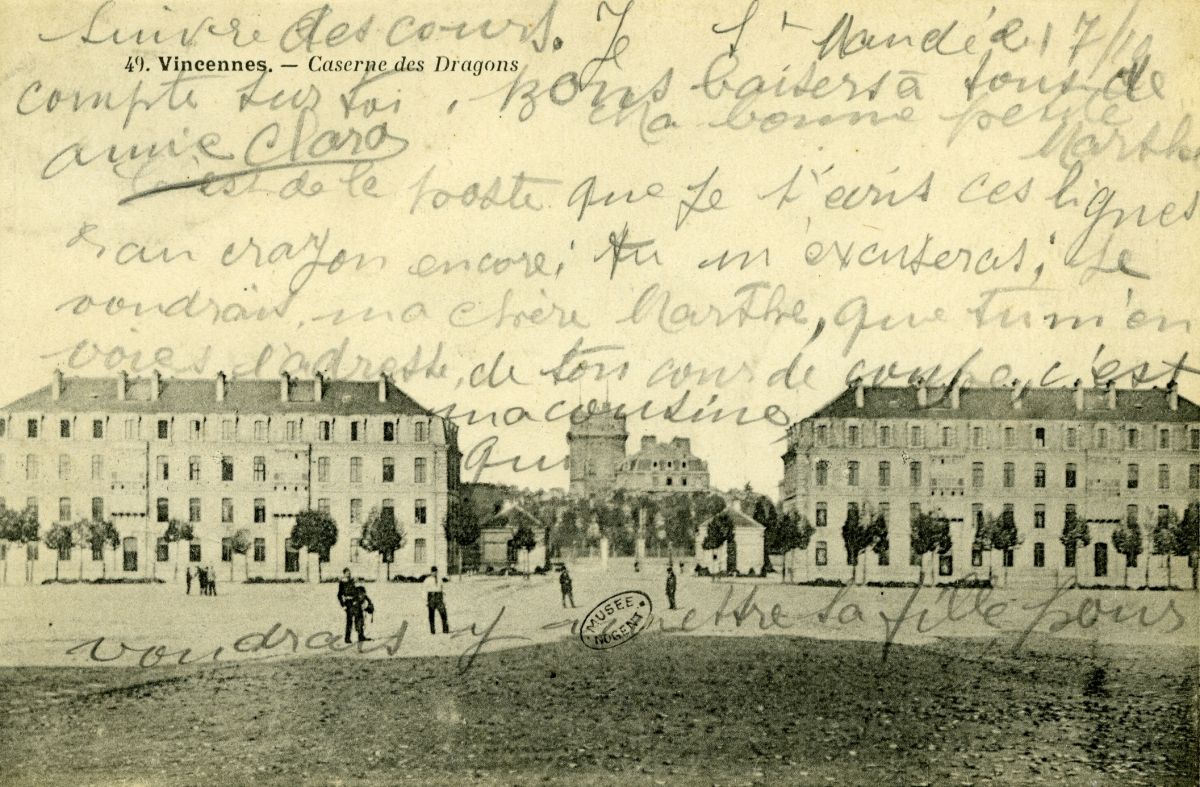 suivre des cours. Je
St Mandé le 17/10
49. Vincennes. — Caserne des Dragons
compte sur toi, Bons baisers à tous de
Ma bonne petite
Marthe
amie Clara
C'est de la poste que je t'écris ces lignes
au crayon encore; tu m'excuseras; je
voudrais, ma chère Marthe, que tu m'en
voies l'adresse de ton cour de coupe, c'est
ma cousine,
qui
voudrais y mettre sa fille pour
MUSÉE
NOGENT